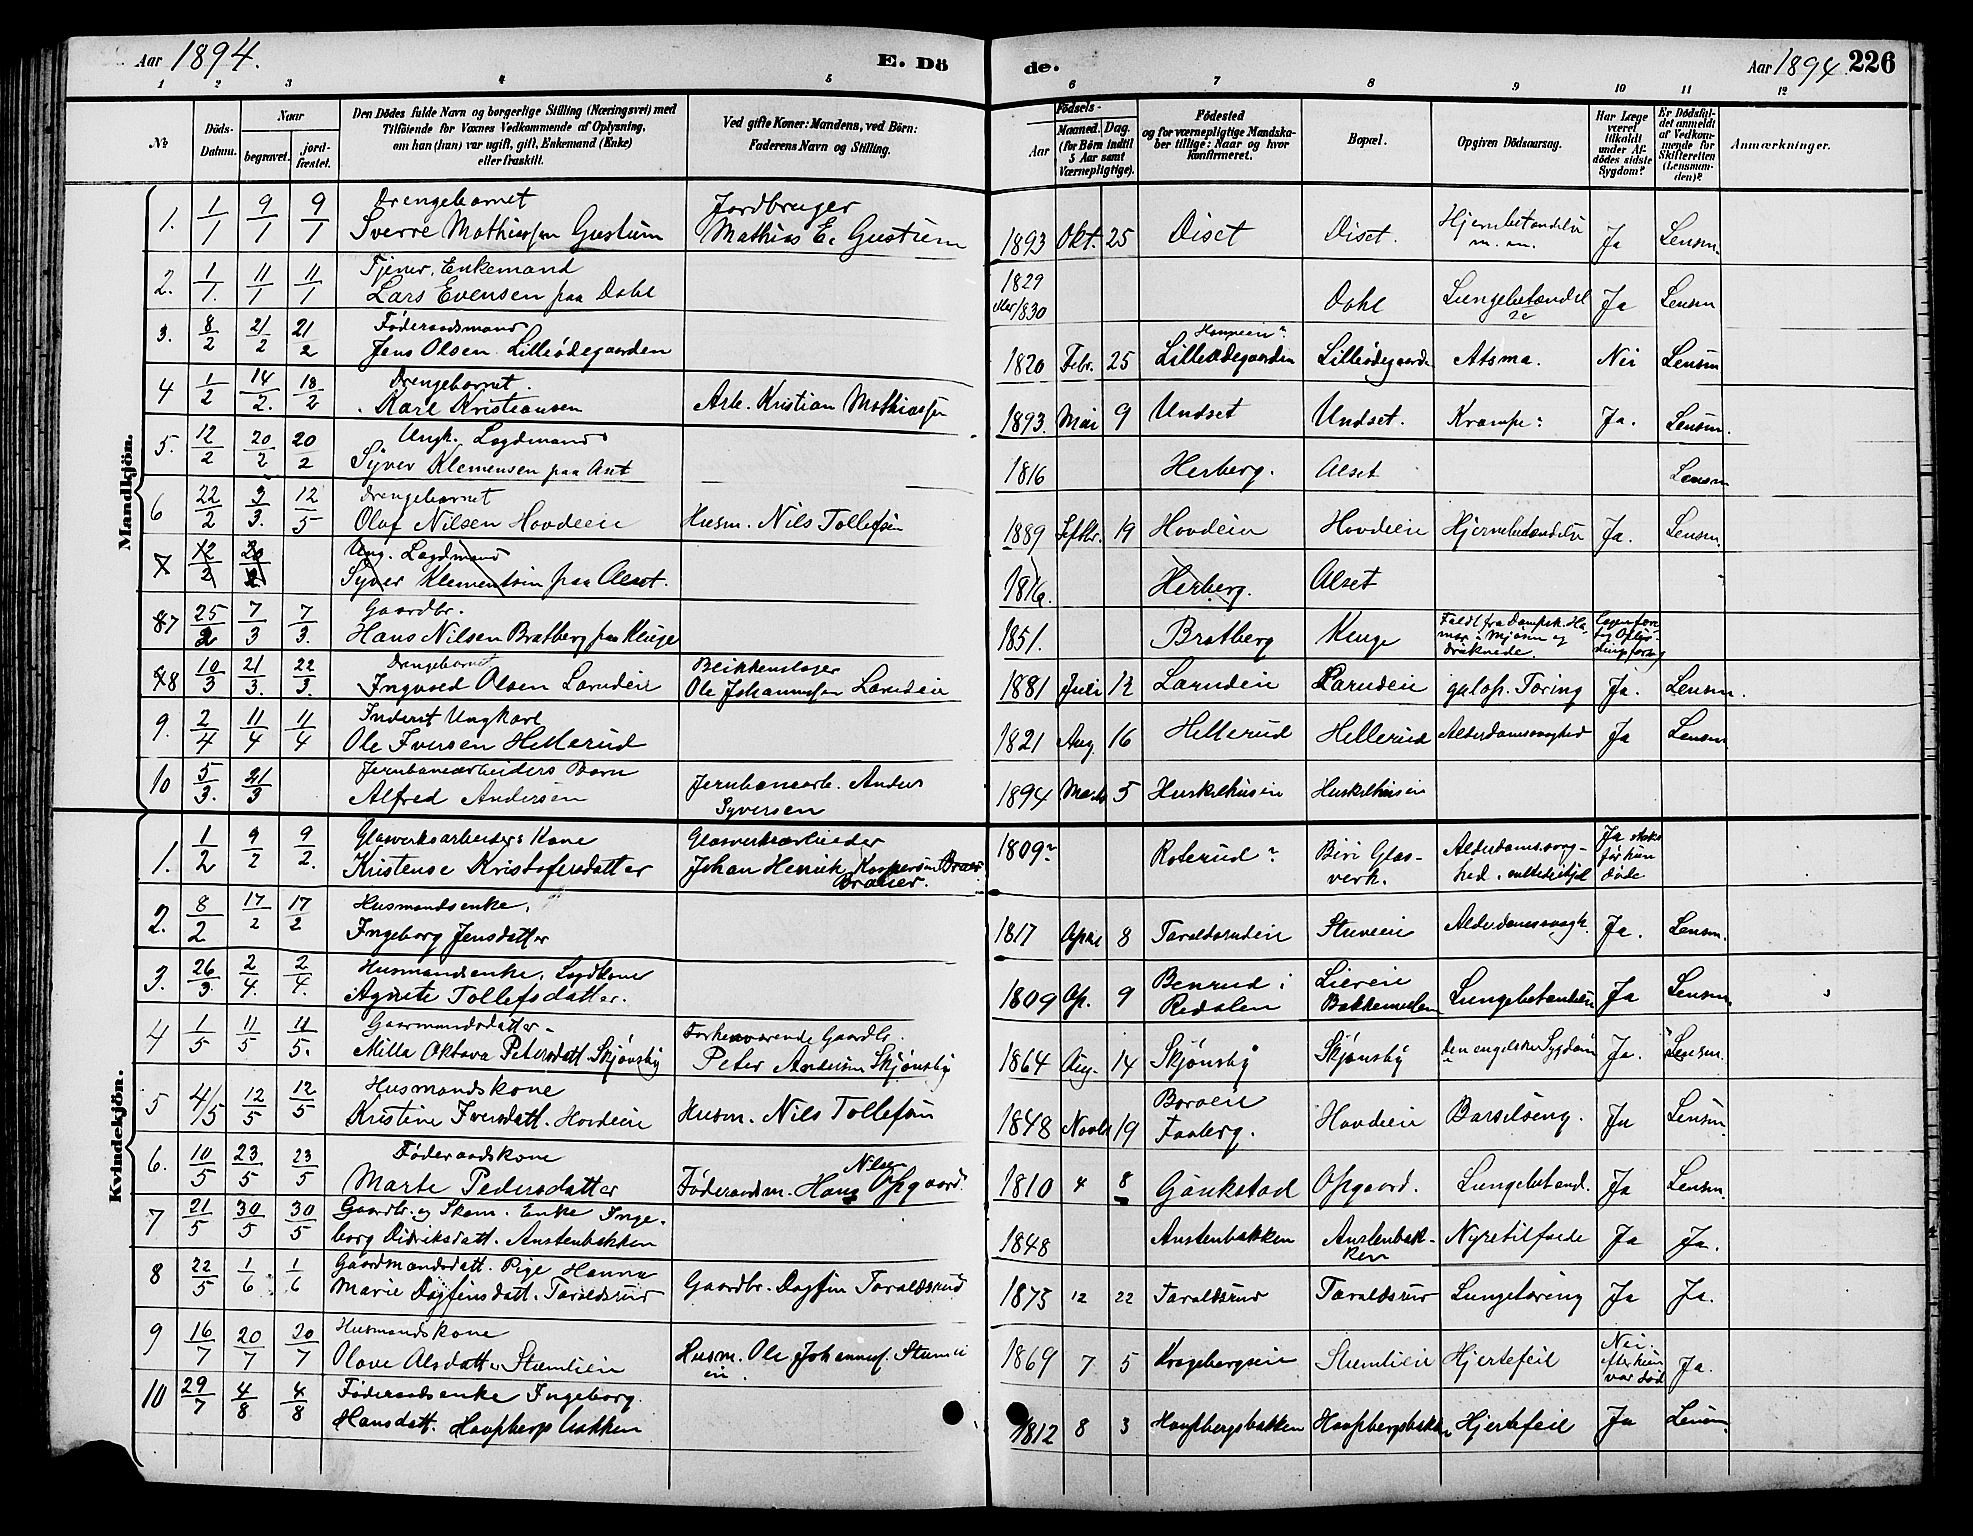 Aar 1894. E. Dö de. Aar 1894. 226
1 2 3 4 5 6 7 8 9 10 11 12
№
Döds-
Datum.
Naar
begravet.
jord-
fæstet.
Den Dödes fulde Navn og borgerlige Stilling (Næringsvei) med
Tilföiende for Voxnes Vedkommende af Oplysning,
om han (hun) var ugift, gift, Enkemand (Enke)
eller fraskilt.
Ved gifte Koner: Mandens, ved Börn:
Faderens Navn og Stilling.
Födsels-
Aar
Maaned. Dag.
(for Börn indtil
5 Aar samt
Værnepligtige).
Födested
og for værnepligtige Mandska-
ber tillige: Naar og hvor
konfirmeret.
Bopæl.
Opgiven Dödsaarsag.
Har Læge
været
tilkaldt
under Af-
dödes sidste
Sygdom?
Er Dödsfal-
det anmeldt
af Vedkom-
mende for
Skifteretten
(Lensman-
den)?
Anmærkninger.
Mandkjön.
Drengebarnet Jordbruger
1. 1/1 9/1 9/1 Sverre Mathiassen Gustum Mathias E. Gustum 1893 Okt. 25 Diset Diset. Hjernebetændelse m. m. Ja Lensm.
Tjener, Enkemand 1829
2. 1/1. 11/1 11/1 Lars Evensen paa Dahl eller 1830 Dahl Lungebetændelse Ja Lensm
Føderaadsmand
3. 8/2 21/2 21/2 Jens Olsen Lilleødegaarden 1820 Febr. 25 Lilleødegaarden Lilleødegaarde Atsma. Nei Lensm
Drengebarnet.
4 1/2 14/2. 18/2 Karl Kristiansen Arb. Kristian Mathiassen 1893. Mai 9 Undset Undset. Krampe: Ja. Lensm.
Ungk. Lægdmand
5. 12/2 20/2 20/2 Syver Klemensen paa 1816 Herberg. Alset Lensm
Drengebarnet
6 22/2 3/3. 12/5 Olaf Nilsen Hovdeeie Husm. Nils Tollefsen 1889 Septbr. 19 Hovdeeie Hovdeeie Hjernebetændelse Ja. Lensm.
Ung. Lægdmand
7 12/2 20/2 Syver Klementsen paa Alset. 1816. Herberg. Alset
Gaardbr.
87 25/2 7/3 7/3. Hans Nilsen Bratberg paa Kluge 1851. Bratberg Kluge Faldt fra Dampsk. Ha-
mar i Mjøsen og
druknede.
Drengebarnet Blikkenslager
8 10/3 21/3. 22/3. Ingvald Olsen Larudeie Ole Johannessen Larudeie 1881 Juli 12 Larudeie Larudeie galop. Tæring Ja. Lensm.
Inderst Ungkarl
9. 2/4 11/4 11/4 Ole Iversen Hellerud 1821 Aug. 16 Hellerud Hellerud Alderdomssvaghed Ja Lensm
Jernbanearbeiders Barn Jernbanearb. Anders
10 5/3. 21/3 Alfred Andersen Syversen 1894 Marts 5 Huskelhuseie Huskelhuseie
Kvindekjön.
Glasverksarbeiders Kone Glasverksarbeider
1. 1/2 9/2 9/2. Kristense Kristofersdatter Johan Henrik Kaspersen Braser 1809? Roterud? Biri Glas-
verk. Alderdomssvag-
hed. Ja
før hun
døde
Husmandsenke.
2. 8/2 17/2 17/2 Ingeborg Jensdatter 1817 April 8 Taraldsrudeie Stuveeie Alderdomssvagh. Ja. Lensm.
Husmandsenke. Lægdkone
3. 26/3 2/4. 2/4. Agnete Tollefsdatter. 1809 Ap. 9 Benrud i
Redalen Liereie
Bakkemoelen Lungebetændelse Ja Lensm.
Gaarmandsdatter - Forhenværende Gaardbr.
4 1/5 11/5 11/5. Milla Oktava Petersdatt. Skjønsby Peter Andersen Skjønsby 1864 Aug. 14 Skjønsby Skjønsby Den engelske Sygdom Ja. Lensm.
Husmandskone
5 4/5 12/5 12/5 Kristine Iversdatt. Hovdeeie Husm. Nils Tollefsen 1848 Novbr 19 Boroeie
Faaberg. Hovdeeie Barselseng. Ja Lensm.
Føderaadskone
6. 10/5 23/5 23/5 Marte Pedersdatter Føderaadsm. Hans Nilsen Opgaard. 1810 4 8 Gaukstad Opgaard. Lungebetænd. Ja Lensm.
Gaardbr. og Skom. Enke Inge-
7 21/5 30/5 30/5 borg Didriksdatt. Austenbakken 1848 Austenbakken Austenbak-
ken Nyretilfælde Ja Ja.
Gaardmandsdatt. Pige Hanna
8 22/5 1/6 1/6 Marie Dagfinsdatt. Taraldsrud Gaardbr. Dagfin Taraldsrud 1873 12 22 Taraldsrud Taraldsrud Lungetæring Ja Ja.
Husmandskone
9 16/7 20/7 20/7 Olave Olsdatter Stumlieie Husm. Ole Johannes. Stumli
eie. 1869 7 5 Kragebergseie Stumlieie Hjertefeil Nei.
efter hun
var død Ja.
Føderaadsenke Ingeborg
10 29/7 4/8 4/8 Hansdatt. Haugsbergsbakken 1812 8 3 Haugsbergsbakken Haugsbergsbakken Hjertefeil Ja Lensm